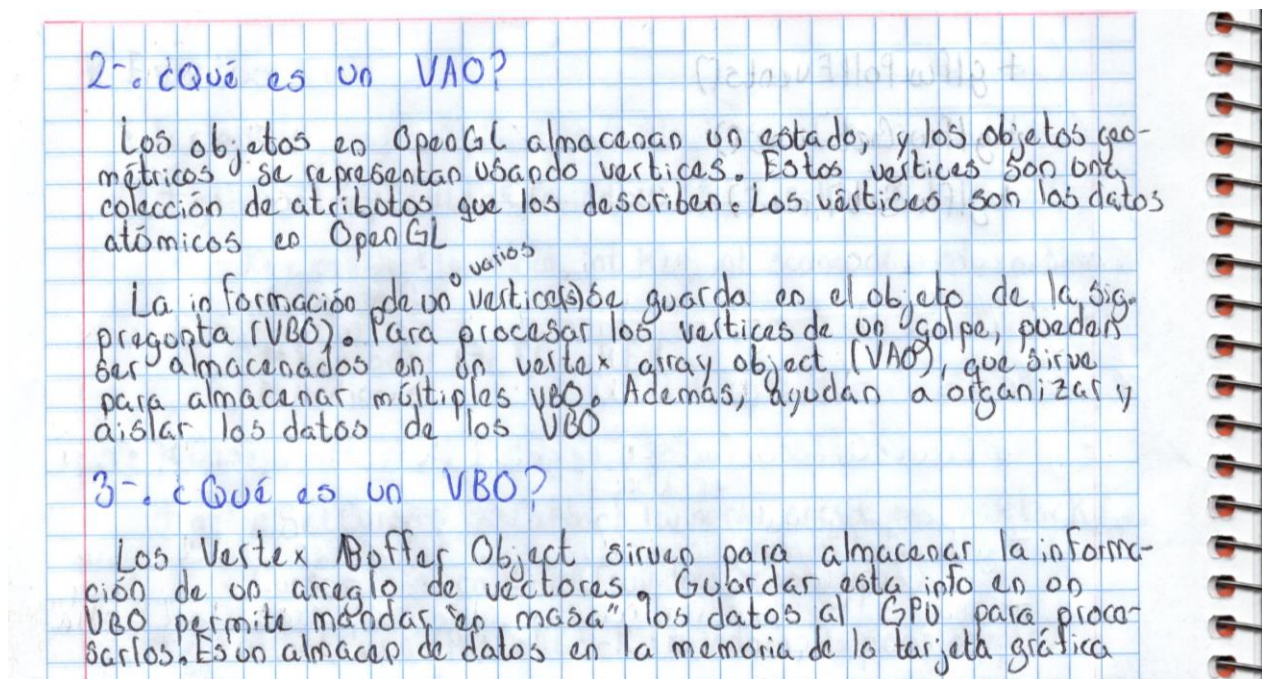 2-. ¿Qué es un VAO?
Los objetos en OpenGL almacenan un estado, y los objetos geo-
métricos se representan usando vertices. Estos vertices son una
colección de atributos que los describen. Los vértices son los datos
atómicos en OpenGL
o varios
La información de un vertice(s) se guarda en el objeto de la sig.
pregunta (VBO). Para procesar los vertices de un golpe, pueden
ser almacenados en un vertex array object (VAO), que sirve
para almacenar múltiples VBO. Además, ayudan a organizar y
aislar los datos de los VBO
3-. ¿Qué es un VBO?
Los Vertex Buffer Object sirven para almacenar la informa-
ción de un arreglo de vectores. Guardar esta info en un
VBO permite mandar "en masa" los datos al GPU para proce-
sarlos. Es un almacen de datos en la memoria de la tarjeta gráfica